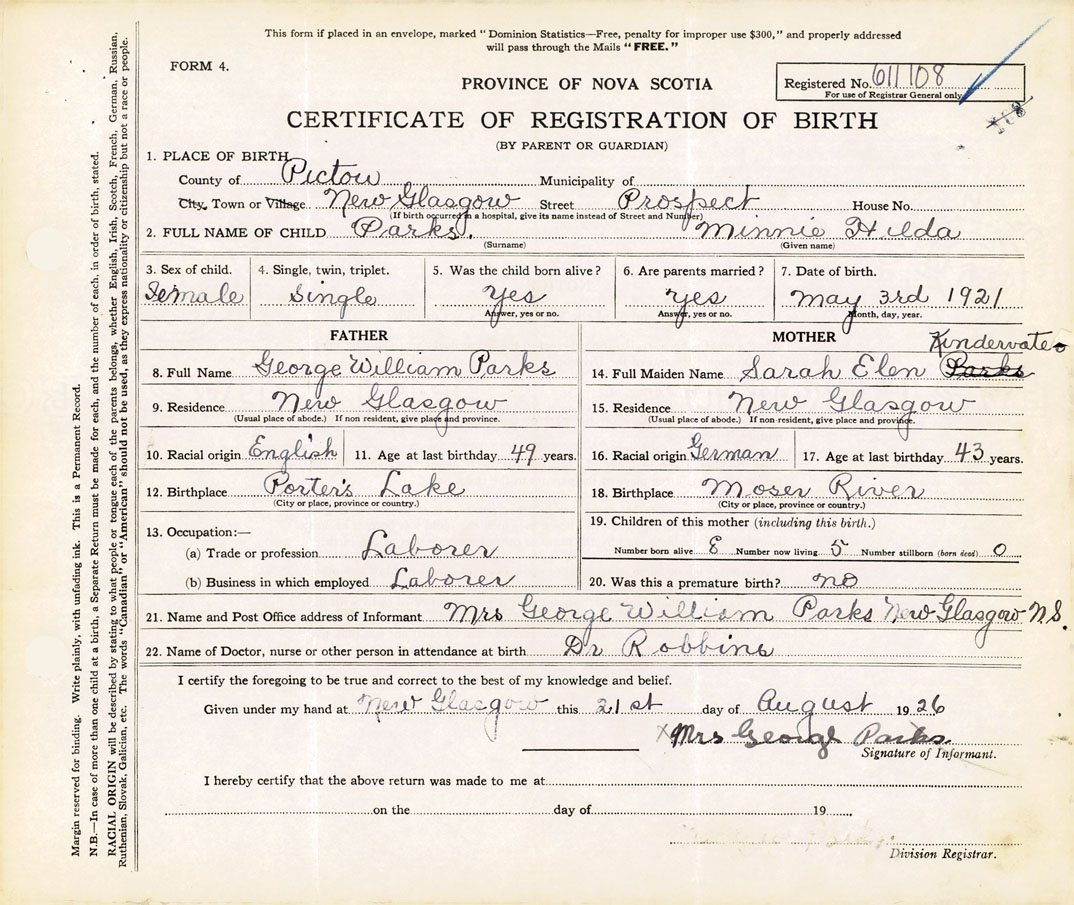 This form if placed in an envelope, marked "Dominion Statistics—Free, penalty for improper use $300," and properly addressed
will pass through the Mails "FREE."
FORM 4.
PROVINCE OF NOVA SCOTIA
Registered No. 611108
For use of Registrar General only
CERTIFICATE OF REGISTRATION OF BIRTH
(BY PARENT OR GUARDIAN)
1. PLACE OF BIRTH
County of Pictou Municipality of
City, Town or Village New Glasgow Street Prospect House No.
(If birth occurred in a hospital, give its name instead of Street and Number)
2. FULL NAME OF CHILD Parks. Minnie Hilda
(Surname) (Given name)
3. Sex of child. 4. Single, twin, triplet. 5. Was the child born alive? 6. Are parents married? 7. Date of birth.
Female Single Yes Yes May 3rd 1921
Answer, yes or no. Answer, yes or no. Month, day, year.
FATHER MOTHER
Kindervater
8. Full Name George William Parks 14. Full Maiden Name Sarah Elen Parks
9. Residence New Glasgow 15. Residence New Glasgow
(Usual place of abode.) If non resident, give place and province. (Usual place of abode.) If non-resident, give place and province.
10. Racial origin English 11. Age at last birthday 49 years. 16. Racial origin German 17. Age at last birthday 43 years.
12. Birthplace Porter's Lake 18. Birthplace Moser River
(City or place, province or country.) (City or place, province or country.)
13. Occupation:— 19. Children of this mother (including this birth.)
(a) Trade or profession Laborer Number born alive 8 Number now living 5 Number stillborn (born dead) 0
(b) Business in which employed Laborer 20. Was this a premature birth? no
21. Name and Post Office address of Informant Mrs George William Parks New Glasgow N.S.
22. Name of Doctor, nurse or other person in attendance at birth Dr Robbins
I certify the foregoing to be true and correct to the best of my knowledge and belief.
Given under my hand at New Glasgow this 21st day of August 1926
x Mrs George Parks.
Signature of Informant.
I hereby certify that the above return was made to me at
on the day of 19
Division Registrar.
Margin reserved for binding. Write plainly, with unfading ink. This is a Permanent Record.
N.B.—In case of more than one child at a birth, a Separate Return must be made for each, and the number of each, in order of birth, stated.
RACIAL ORIGIN will be described by stating to what people or tongue each of the parents belongs, whether English, Irish, Scotch, French, German, Russian,
Ruthenian, Slovak, Galician, etc. The words "Canadian" or "American" should not be used, as they express nationality or citizenship but not a race or people.